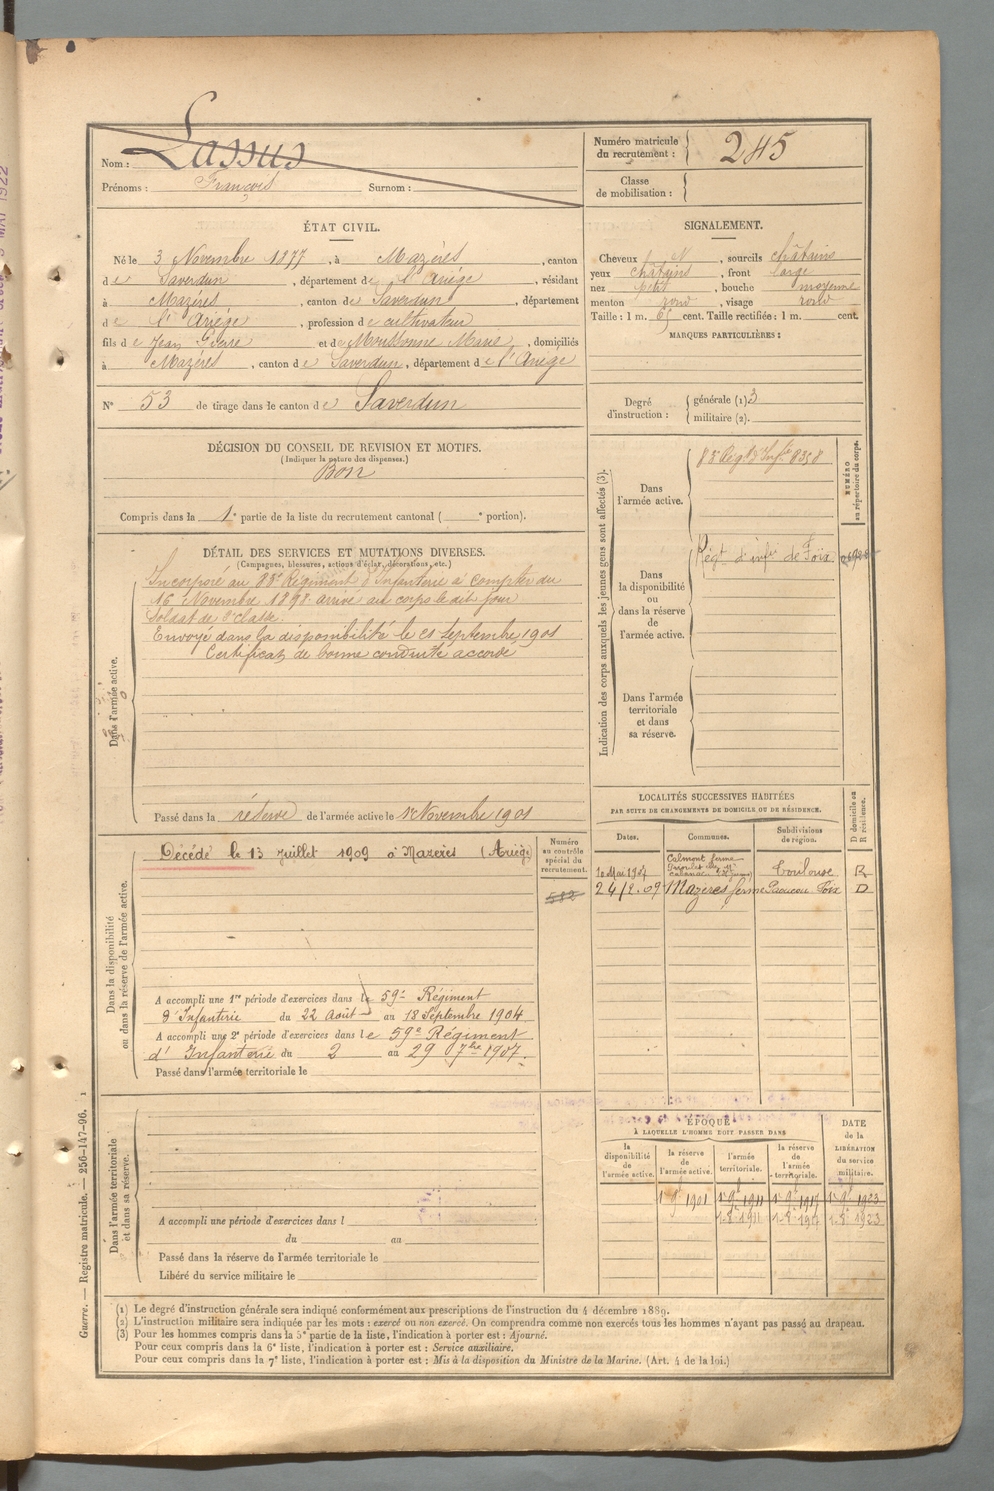 Nom : Lassus
Prénoms : François Surnom :
Numéro matricule du recrutement : 245
Classe de mobilisation :
ÉTAT CIVIL.
Né le 3 Novembre 1877, à Mazères, canton
de Saverdun, département de l'Ariège, résidant
à Mazères, canton de Saverdun, département
de l'Ariège, profession de cultivateur
fils de Jean Pierre et de Moussonne Marie, domiciliés
à Mazères, canton de Saverdun, département de l'Ariège
N° 53 de tirage dans le canton de Saverdun
SIGNALEMENT.
Cheveux N, sourcils châtains
yeux châtains, front large
nez petit, bouche moyenne
menton rond, visage rond
Taille : 1 m. cent. Taille rectifiée : 1 m. cent.
MARQUES PARTICULIÈRES :
Degré d'instruction : générale (1) 3
militaire (2).
DÉCISION DU CONSEIL DE REVISION ET MOTIFS.
(Indiquer la nature des dispenses.)
Bon
Compris dans la 1e partie de la liste du recrutement cantonal ( e portion).
DÉTAIL DES SERVICES ET MUTATIONS DIVERSES.
(Campagnes, blessures, actions d'éclat, décorations, etc.)
Dans l'armée active.
Incorporé au 83e Régiment d'Infanterie à compter du
16 Novembre 1898. arrivé au corps le dit jour
Soldat de 2e classe.
Envoyé dans la disponibilité le 21 Septembre 1901
Certificat de bonne conduite accordé
Passé dans la réserve de l'armée active le 1er Novembre 1901
Indication des corps auxquels les jeunes gens sont affectés (3).
NUMÉRO au répertoire du corps.
Dans l'armée active.
83 Régt d'Infie 8358
Dans la disponibilité ou dans la réserve de l'armée active.
Régt d'infie de Foix
Dans l'armée territoriale et dans sa réserve.
Dans la disponibilité ou dans la réserve de l'armée active.
Numéro au contrôle spécial du recrutement.
582
Décédé le 13 juillet 1909 à Mazères (Ariège)
A accompli une 1re période d'exercices dans le 59e Régiment
d'Infanterie du 22 Août au 18 Septembre 1904
A accompli une 2e période d'exercices dans le 59e Régiment
d'Infanterie du 2 au 29 7bre 1907.
Passé dans l'armée territoriale le
LOCALITÉS SUCCESSIVES HABITÉES
PAR SUITE DE CHANGEMENTS DE DOMICILE OU DE RÉSIDENCE.
Dates. Communes. Subdivisions de région. D domicile ou R résidence.
10 Mai 1904 Calmont ferme Toulouse R
24/2.09 Mazères ferme Foix D
Dans l'armée territoriale et dans sa réserve.
A accompli une période d'exercices dans l
du au
Passé dans la réserve de l'armée territoriale le
Libéré du service militaire le
ÉPOQUE
À LAQUELLE L'HOMME DOIT PASSER DANS
la disponibilité de l'armée active. la réserve de l'armée active. l'armée territoriale. la réserve de l'armée territoriale. DATE de la LIBÉRATION du service militaire.
1er 9bre 1901 1er 9bre 1911 1er 9bre 1917 1er 9bre 1923
(1) Le degré d'instruction générale sera indiqué conformément aux prescriptions de l'instruction du 4 décembre 1889.
(2) L'instruction militaire sera indiquée par les mots : exercé ou non exercé. On comprendra comme non exercés tous les hommes n'ayant pas passé au drapeau.
(3) Pour les hommes compris dans la 5e partie de la liste, l'indication à porter est : Ajourné.
Pour ceux compris dans la 6e liste, l'indication à porter est : Service auxiliaire.
Pour ceux compris dans la 7e liste, l'indication à porter est : Mis à la disposition du Ministre de la Marine. (Art. 4 de la loi.)
Guerre. — Registre matricule. — 256-147-96. 1